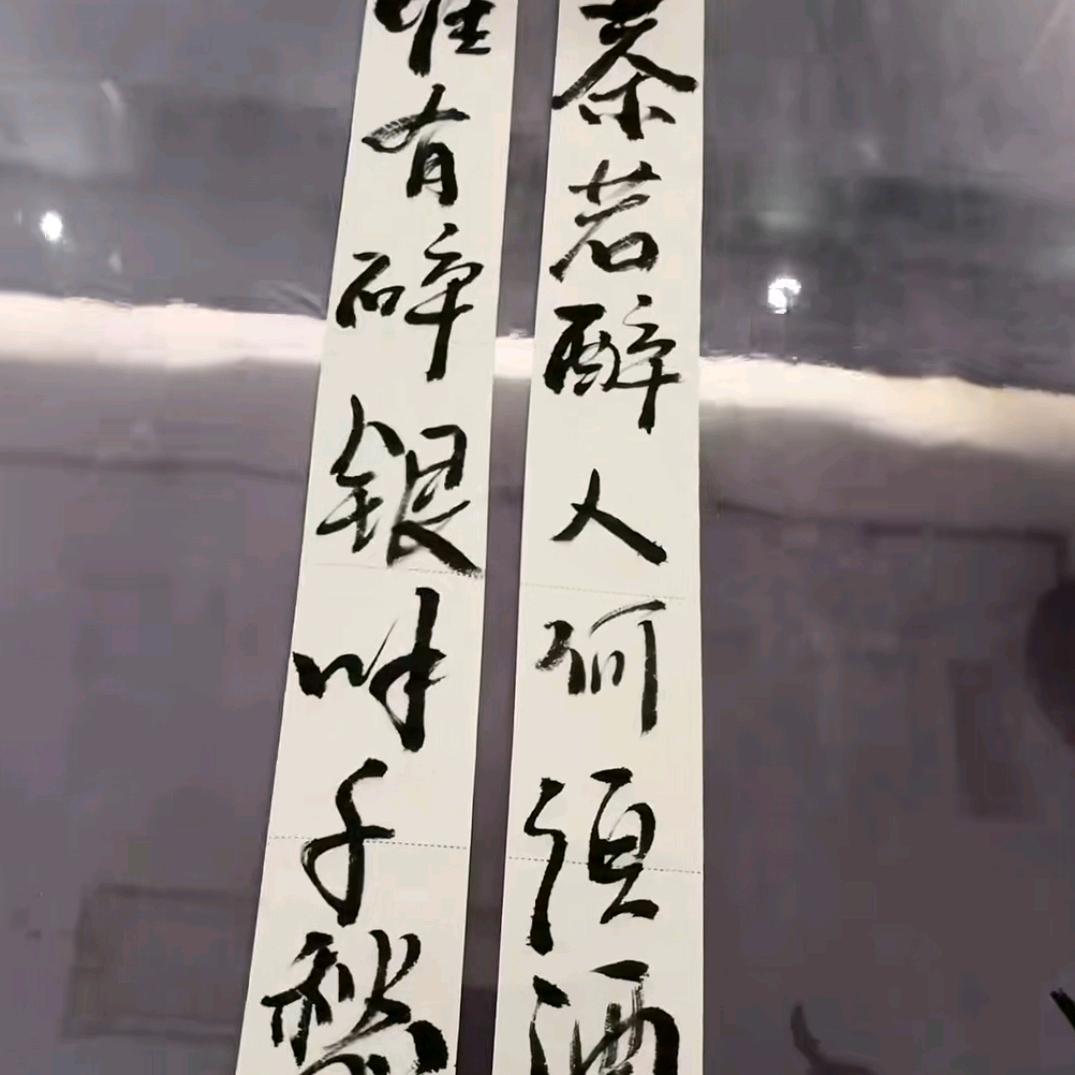 茶若醉人何须酒
唯有碎银叶千愁